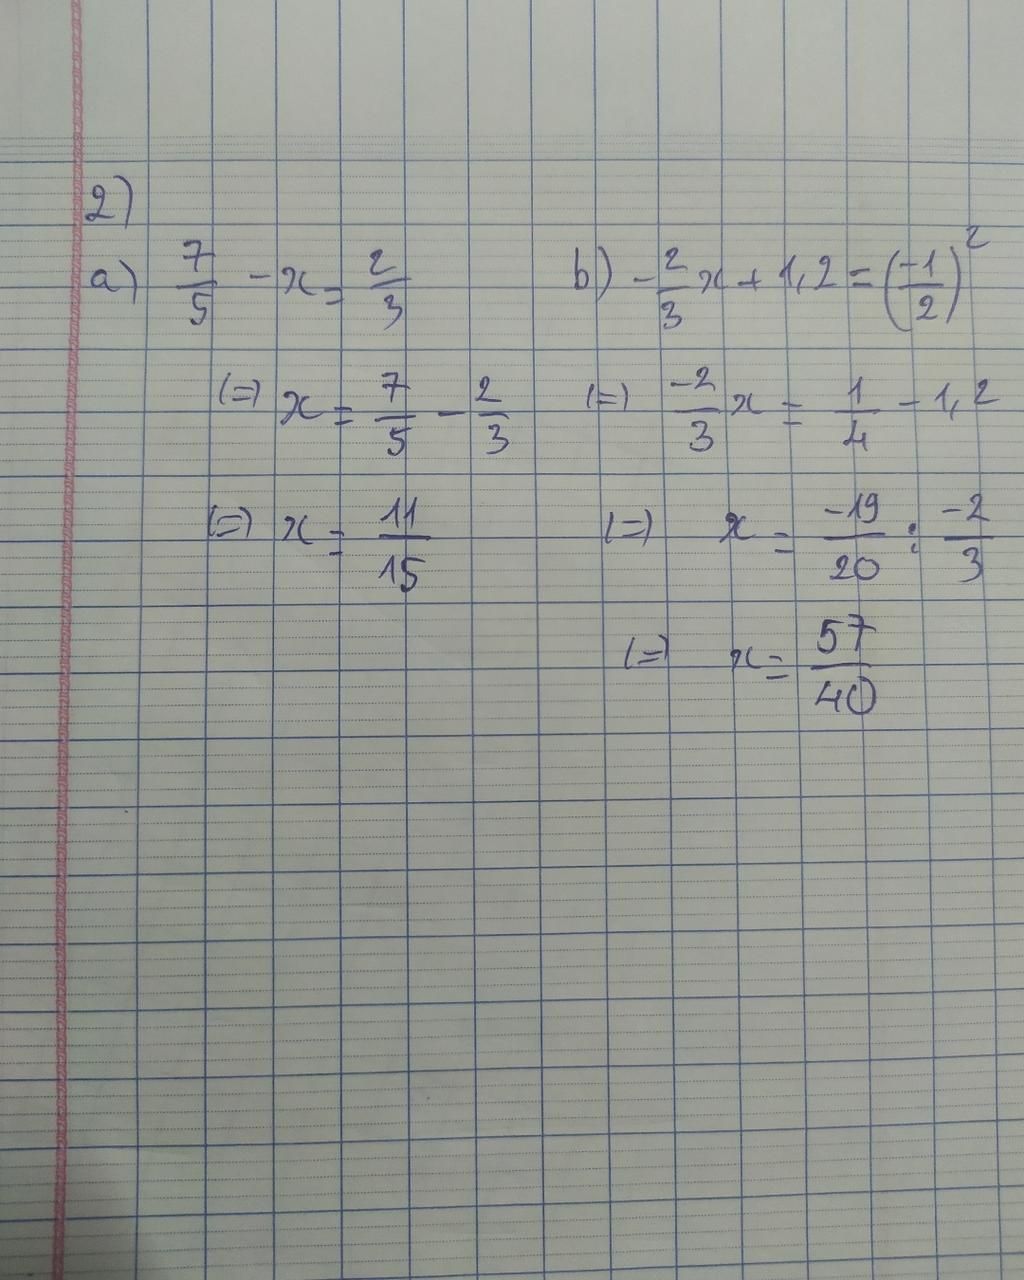 2)
a) 7/5 - x = 2/3
(=) x = 7/5 - 2/3
(=) x = 11/15
b) -2/3 x + 1,2 = (-1/2)²
(=) -2/3 x = 1/4 - 1,2
(=) x = -19/20 : -2/3
(=) x = 57/40